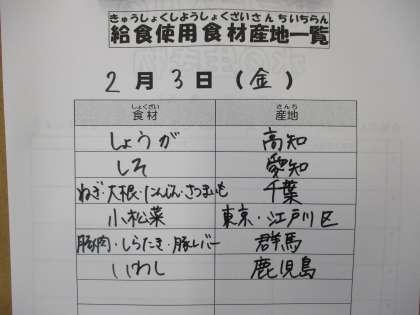 きゅうしょくしようしょくざいさんちいちらん
給食使用食材産地一覧
2月3日(金)
しょくざい さんち
食材 産地
しょうが 高知
しそ 愛知
ねぎ・大根・にんじん・さつまいも 千葉
小松菜 東京・江戸川区
豚肉・しらたき・豚レバー 群馬
いわし 鹿児島